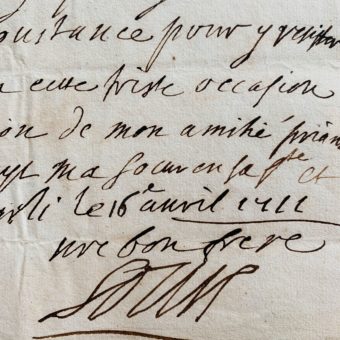 constance pour y resister
en cette triste occasion
ion de mon amitié priant
ayt ma soeur en sa ste et
Marli le 16e auril 1711
vre bon frere
Louis